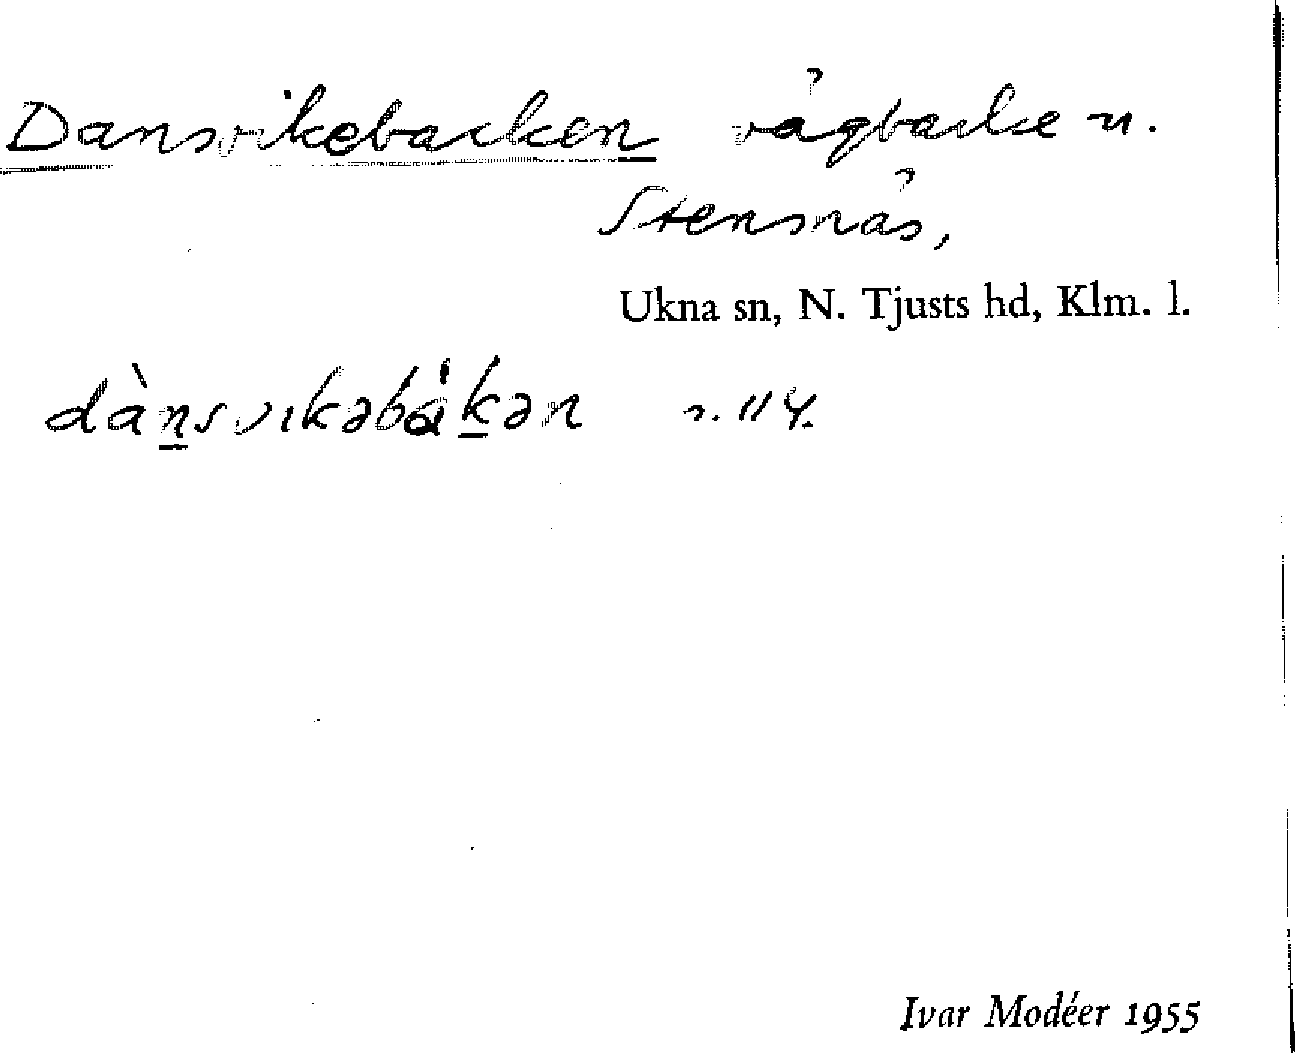 Dansvikebacken vägbacke n.
Stensnäs,
Ukna sn, N. Tjusts hd, Klm. l.
dànsvıkəbákən s. 114.
Ivar Modéer 1955